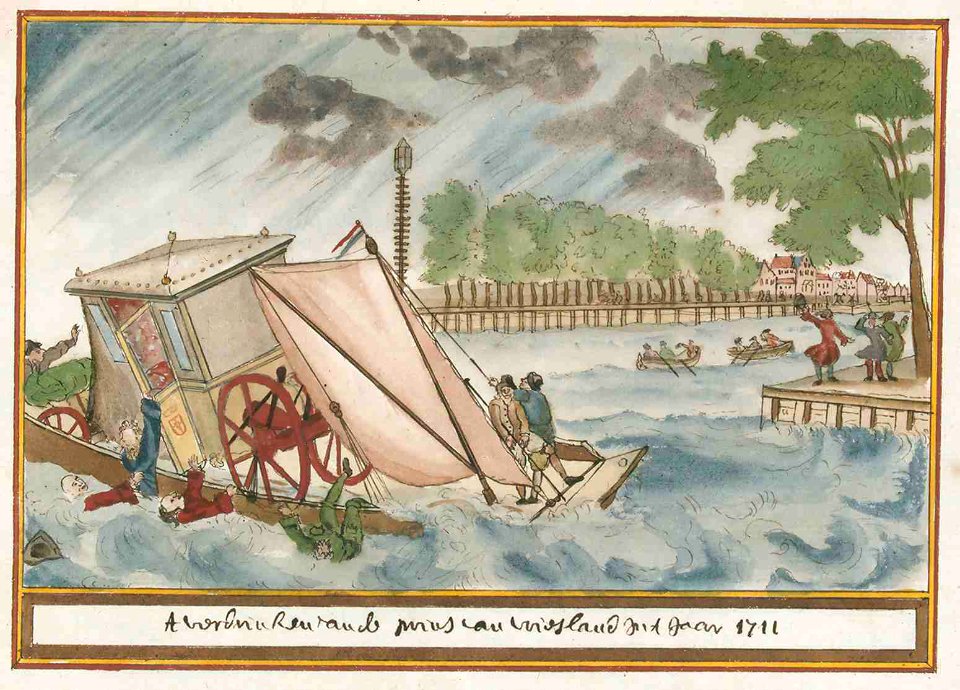 t verdrinken vande prins van vriesland in t Jaar 1711